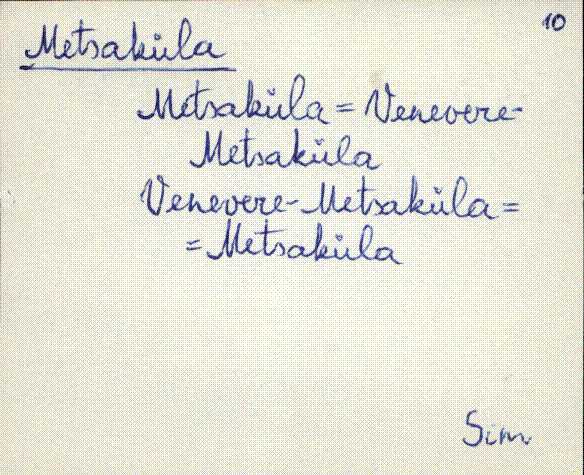 10
Metsaküla
Metsaküla = Venevere-
Metsaküla
Venevere-Metsaküla =
= Metsaküla
Sim